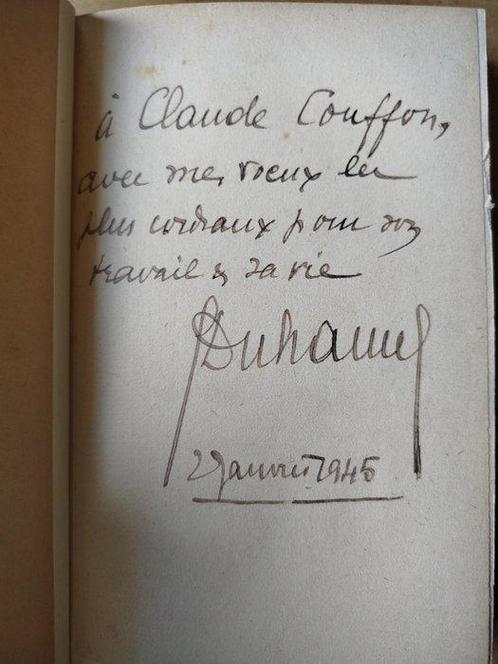 à Claude Couffon,
avec mes vœux les
plus cordiaux pour son
travail & sa vie
GDuhamel
2 janvier 1945